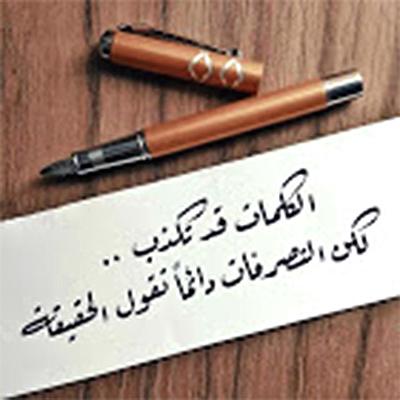 الكلمات قد تكذب ..
لكن التصرفات دائماً تقول الحقيقة